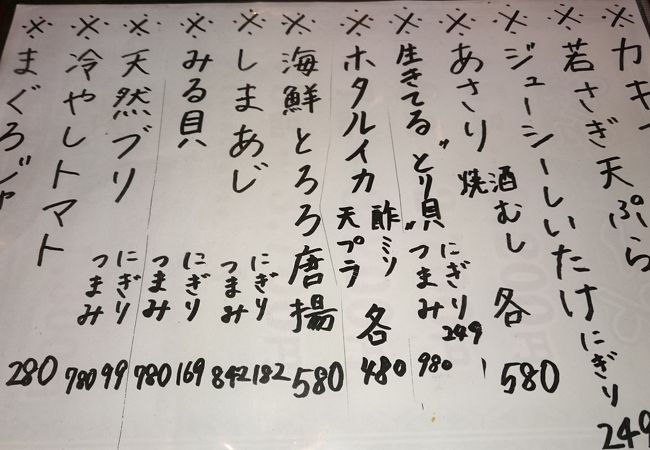 ※カキ
※若さぎ天ぷら
※ジューシーしいたけ にぎり 249
※あさり 酒むし 焼 各 580
※生きてる"とり貝" にぎり 249 つまみ 980
※ホタルイカ 酢ミソ 天プラ 各 480
※海鮮とろろ唐揚 580
※しまあじ にぎり 182 つまみ 842
※みる貝 にぎり 169 つまみ 780
※天然ブリ にぎり 99 つまみ 780
※冷やしトマト 280
※まぐろジャ